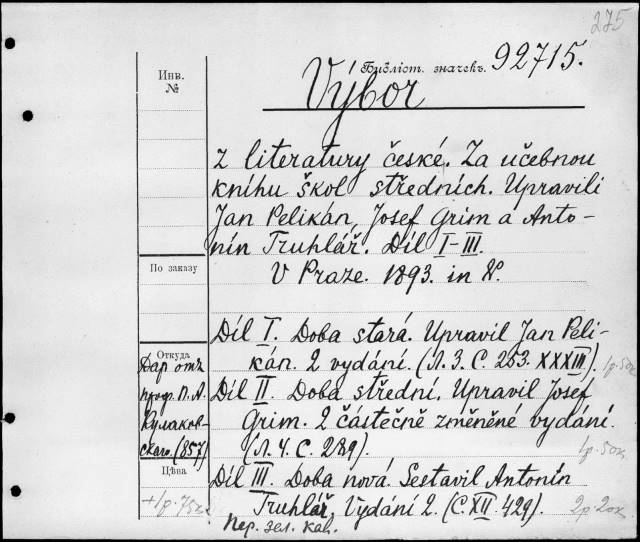 275
Библіот. значекъ. 92715.
Инв.
№
Výbor
z literatury české. Za učebnou
knihu škol středních. Upravili
Jan Pelikán, Josef Grim a Anto-
nín Truhlář. Díl I-III.
По заказу
V Praze. 1893. in 8°.
Díl I. Doba stará. Upravil Jan Peli-
kán. 2 vydání. (Л. 3. С. 253. XXXIII). 1р. 50к
Откуда
Даръ отъ
проф. П. А.
Кулаков-
скаго. (857)
Díl II. Doba střední. Upravil Josef
Grim. 2 částečně změněné vydání.
(Л. 4. С. 289). 1р. 50к
Цѣна
+1р. 75к
Díl III. Doba nová. Sestavil Antonín
Truhlář. Vydání 2. (С. XII. 429). 2р. 20к
Пер. зел. кав.